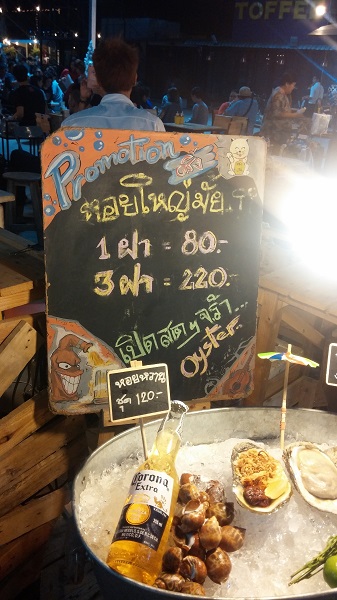 TOFFEE
Promotion
หอยใหญ่มั๊ย..?
1 ฝา = 80.-
3 ฝา = 220.-
เปิดสดๆจร้า...
Oyster
หอยหวาน
ชุด 120.-
Corona
Extra